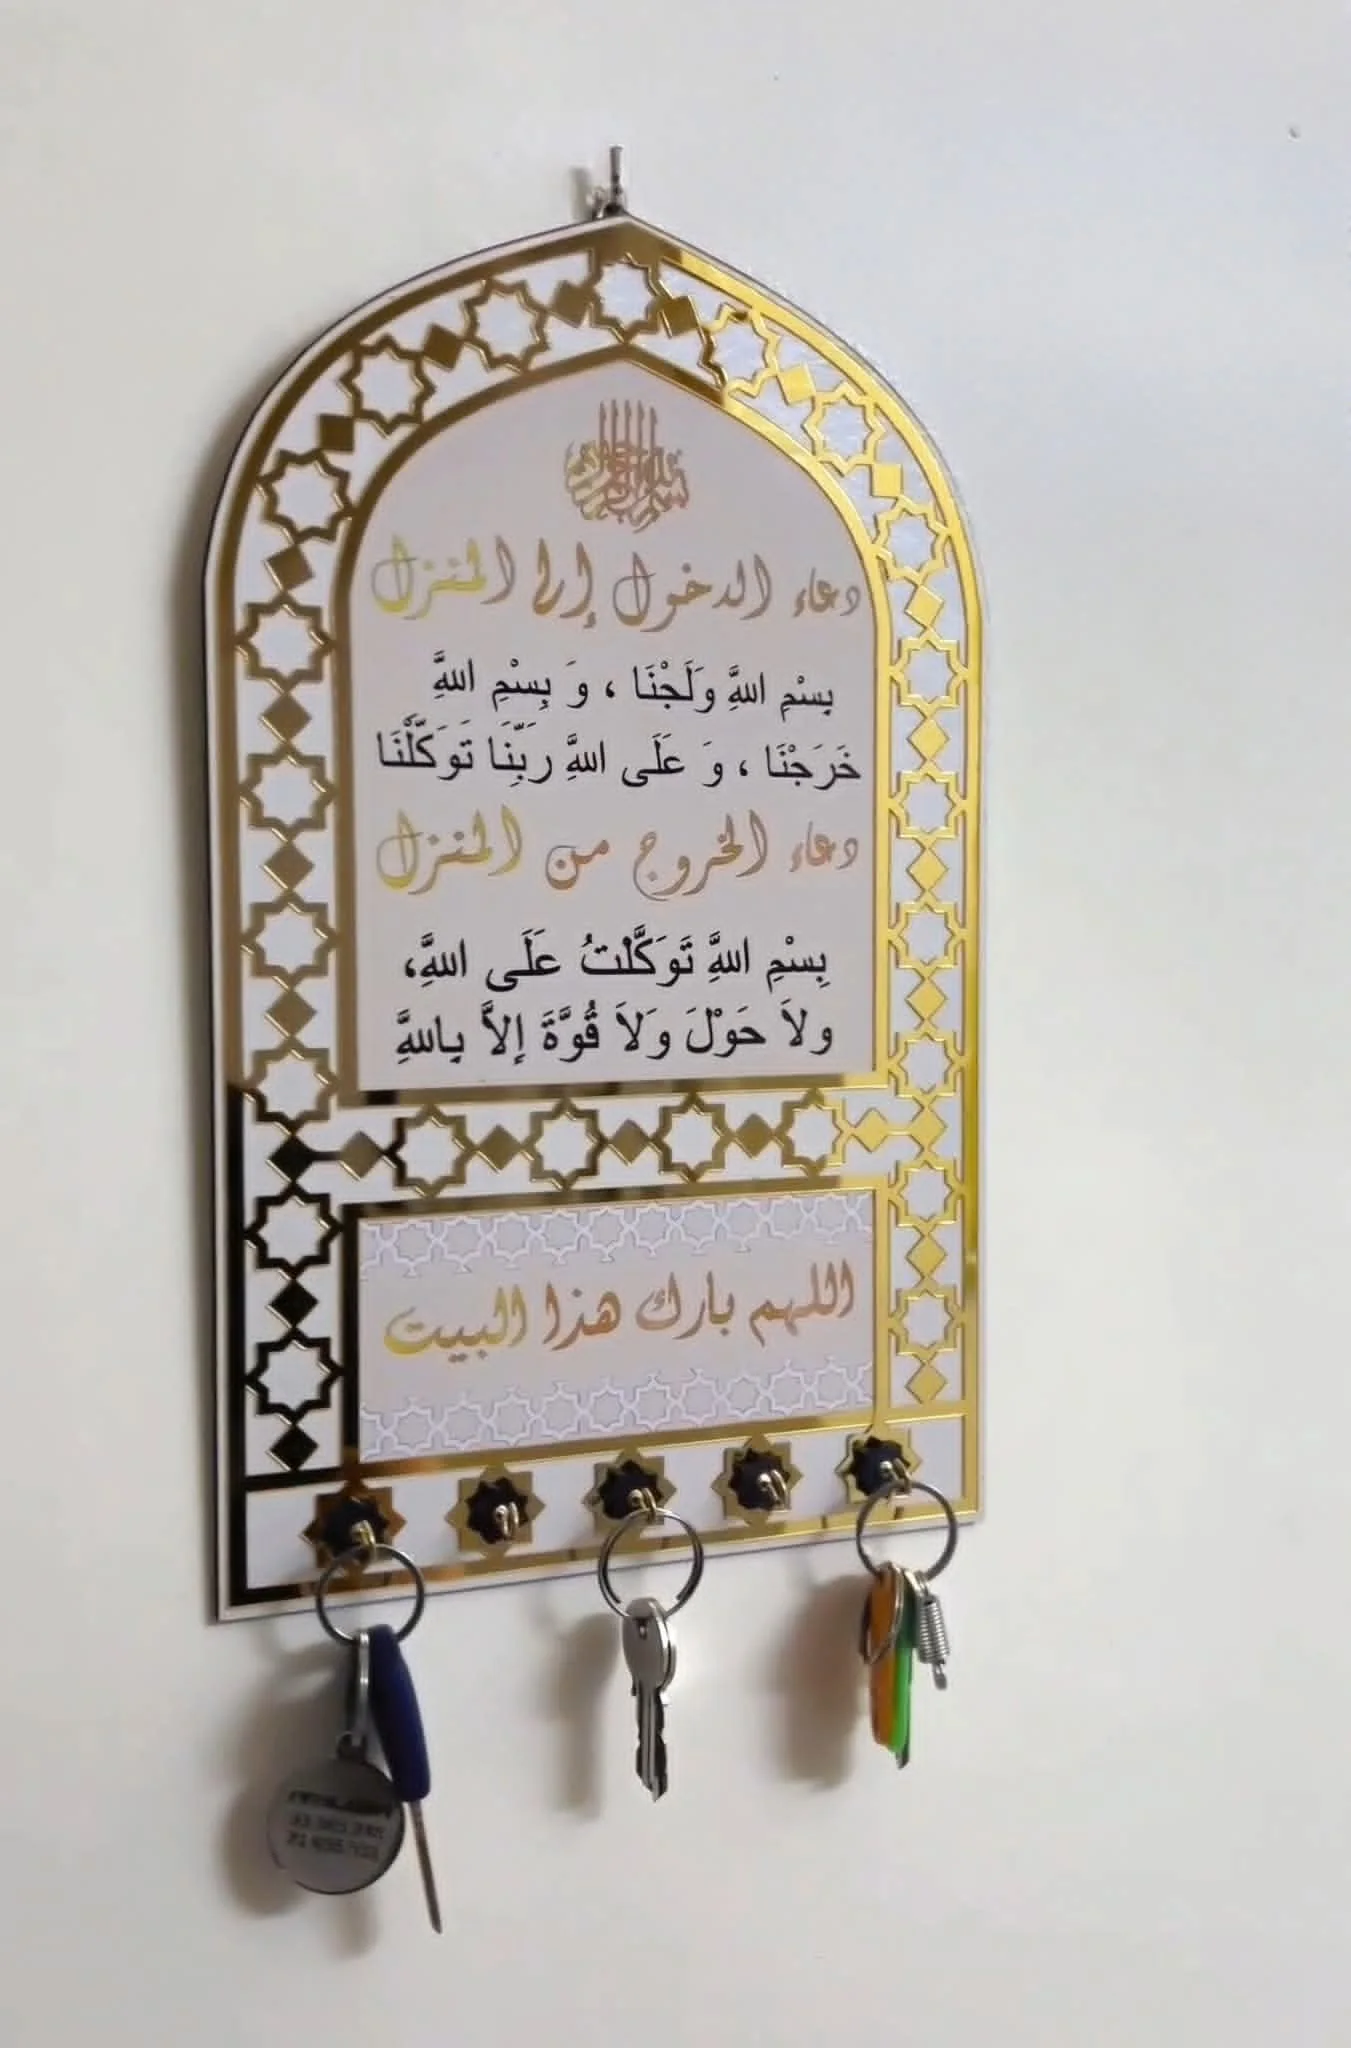 بسم الله الرحمن الرحيم
دعاء الدخول إلى المنزل
بِسْمِ اللهَِّ وَلَجْنَا ، وَ بِسْمِ اللهَِّ
خَرَجْنَا ، وَ عَلَى اللهَِّ رَبِّنَا تَوَكَّلْنَا
دعاء الخروج من المنزل
بِسْمِ اللهَِّ تَوَكَّلْتُ عَلَى اللهَِّ،
ولاَ حَوْلَ وَلاَ قُوَّةَ إِلاَّ بِاللهَِّ
اللهم بارك هذا البيت